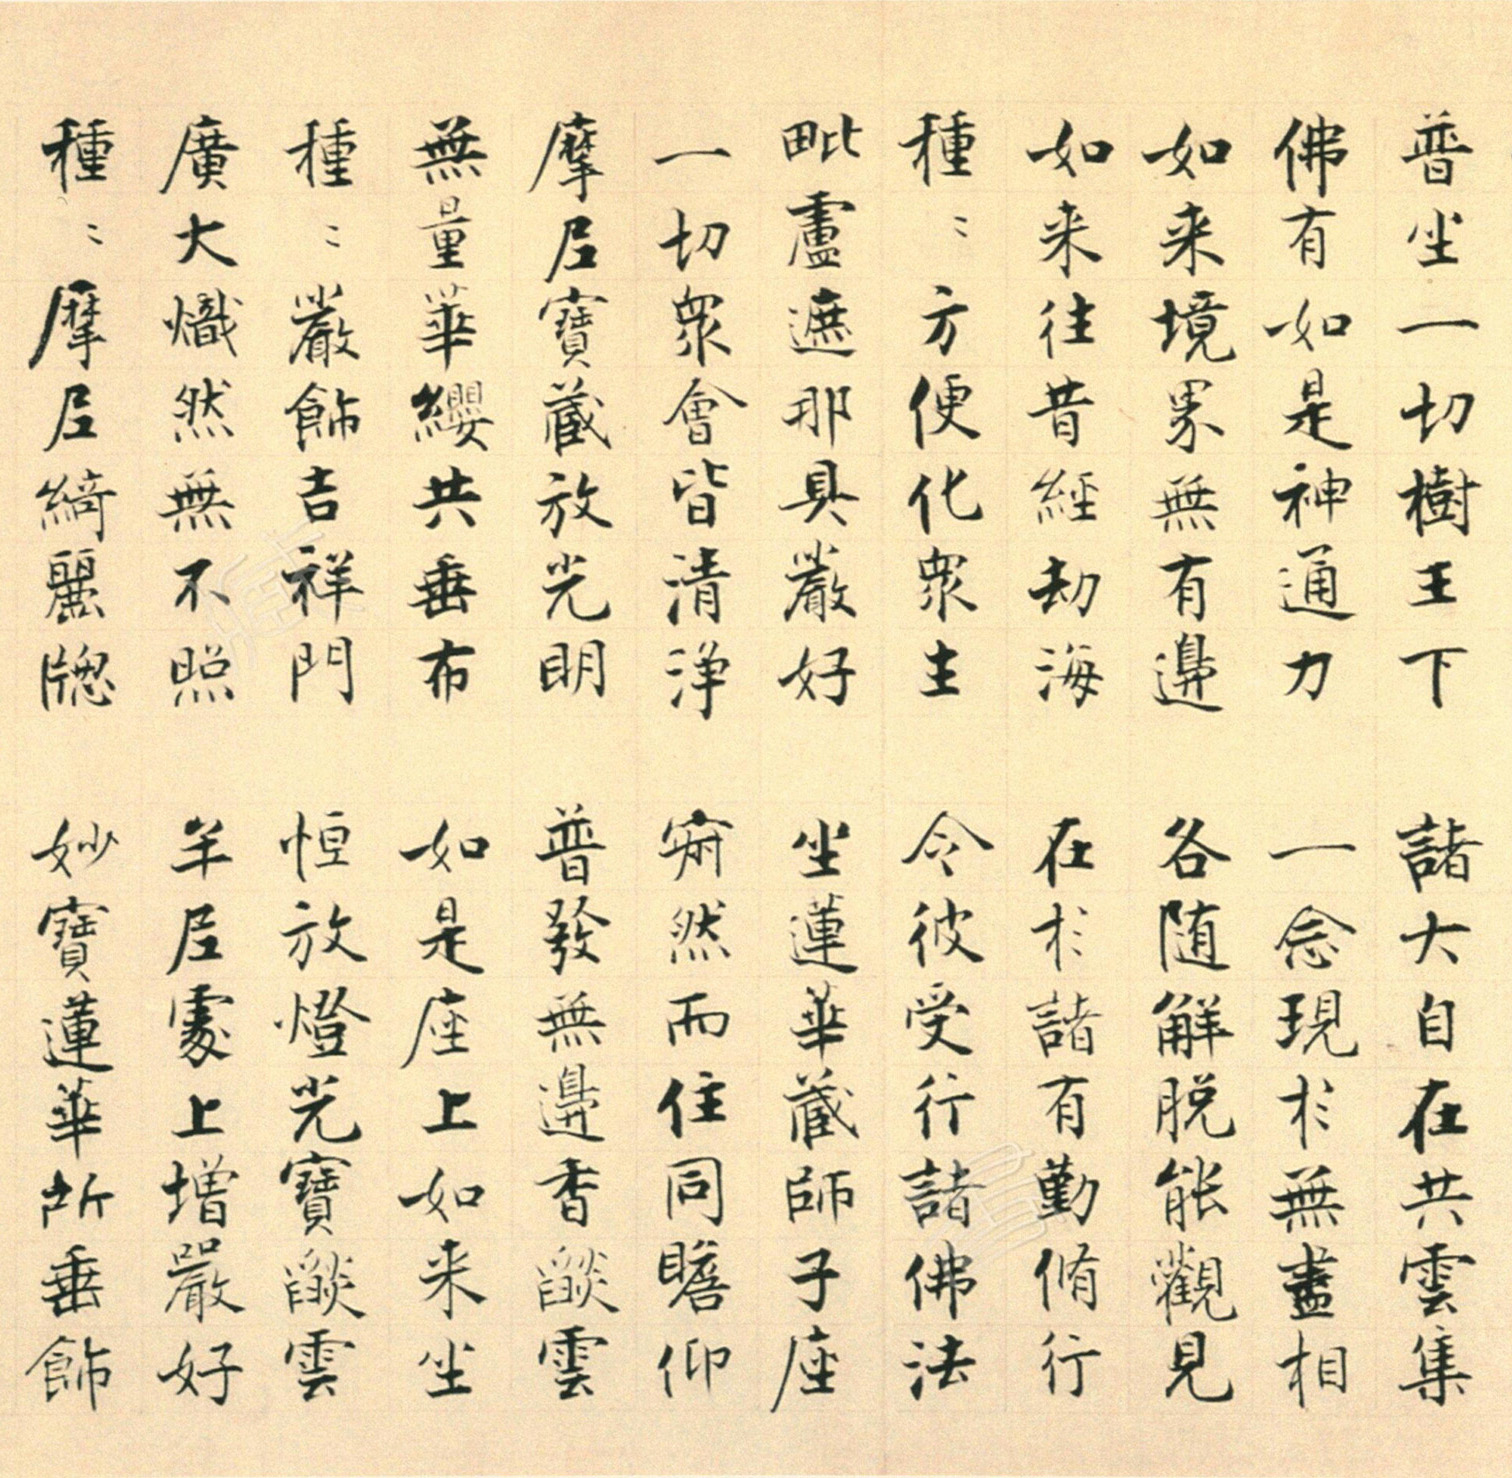 普坐一切樹王下　諸大自在共雲集
佛有如是神通力　一念現於無盡相
如来境界無有邊　各随解脱能觀見
如来往昔經劫海　在於諸有勤脩行
種〻方便化眾生　令彼受行諸佛法
毗盧遮那具嚴好　坐蓮華藏師子座
一切眾會皆清淨　寂然而住同瞻仰
摩尼寶藏放光明　普發無邊香𦦨雲
無量華纓共垂布　如是座上如来坐
種〻嚴飾吉祥門　恒放燈光寶𦦨雲
廣大熾然無不照　牟尼處上增嚴好
種〻摩尼綺麗牕　妙寶蓮華所垂飾